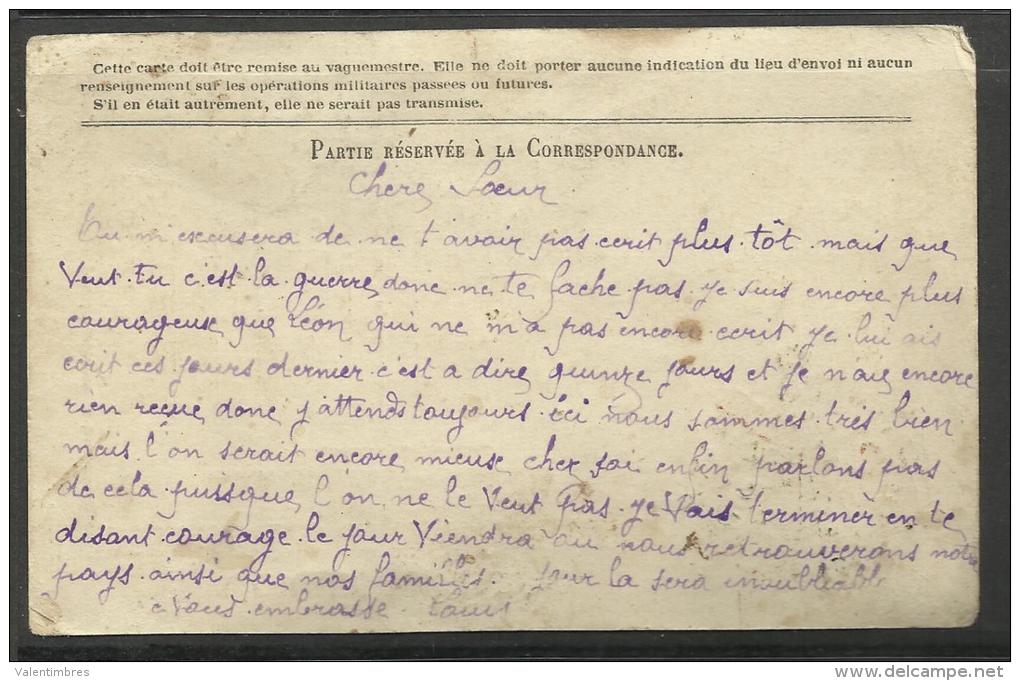 Cette carte doit être remise au vaguemestre. Elle ne doit porter aucune indication du lieu d'envoi ni aucun
renseignement sur les opérations militaires passées ou futures.
S'il en était autrement, elle ne serait pas transmise.
PARTIE RÉSERVÉE À LA CORRESPONDANCE.
Chere Sœur
Tu m'excusera de ne t'avoir pas ecrit plus tôt mais que
Veut-tu c'est la guerre donc ne te fache pas je suis encore plus
courageuse que Léon qui ne m'a pas encore ecrit je lui ais
ecrit ces jours dernier c'est a dire quinze jours et je n'ai encore
rien reçue donc j'attends toujours ici nous sommes très bien
mais l'on serait encore mieuse chez soi enfin parlons pas
de cela puisque l'on ne le Veut pas je Vais terminer en te
disant courage le jour Viendra ou nous retrouverons notre
pays ainsi que nos familles jour la sera inoubliable
Vous embrasse Louis
Valentimbres
www.delcampe.net